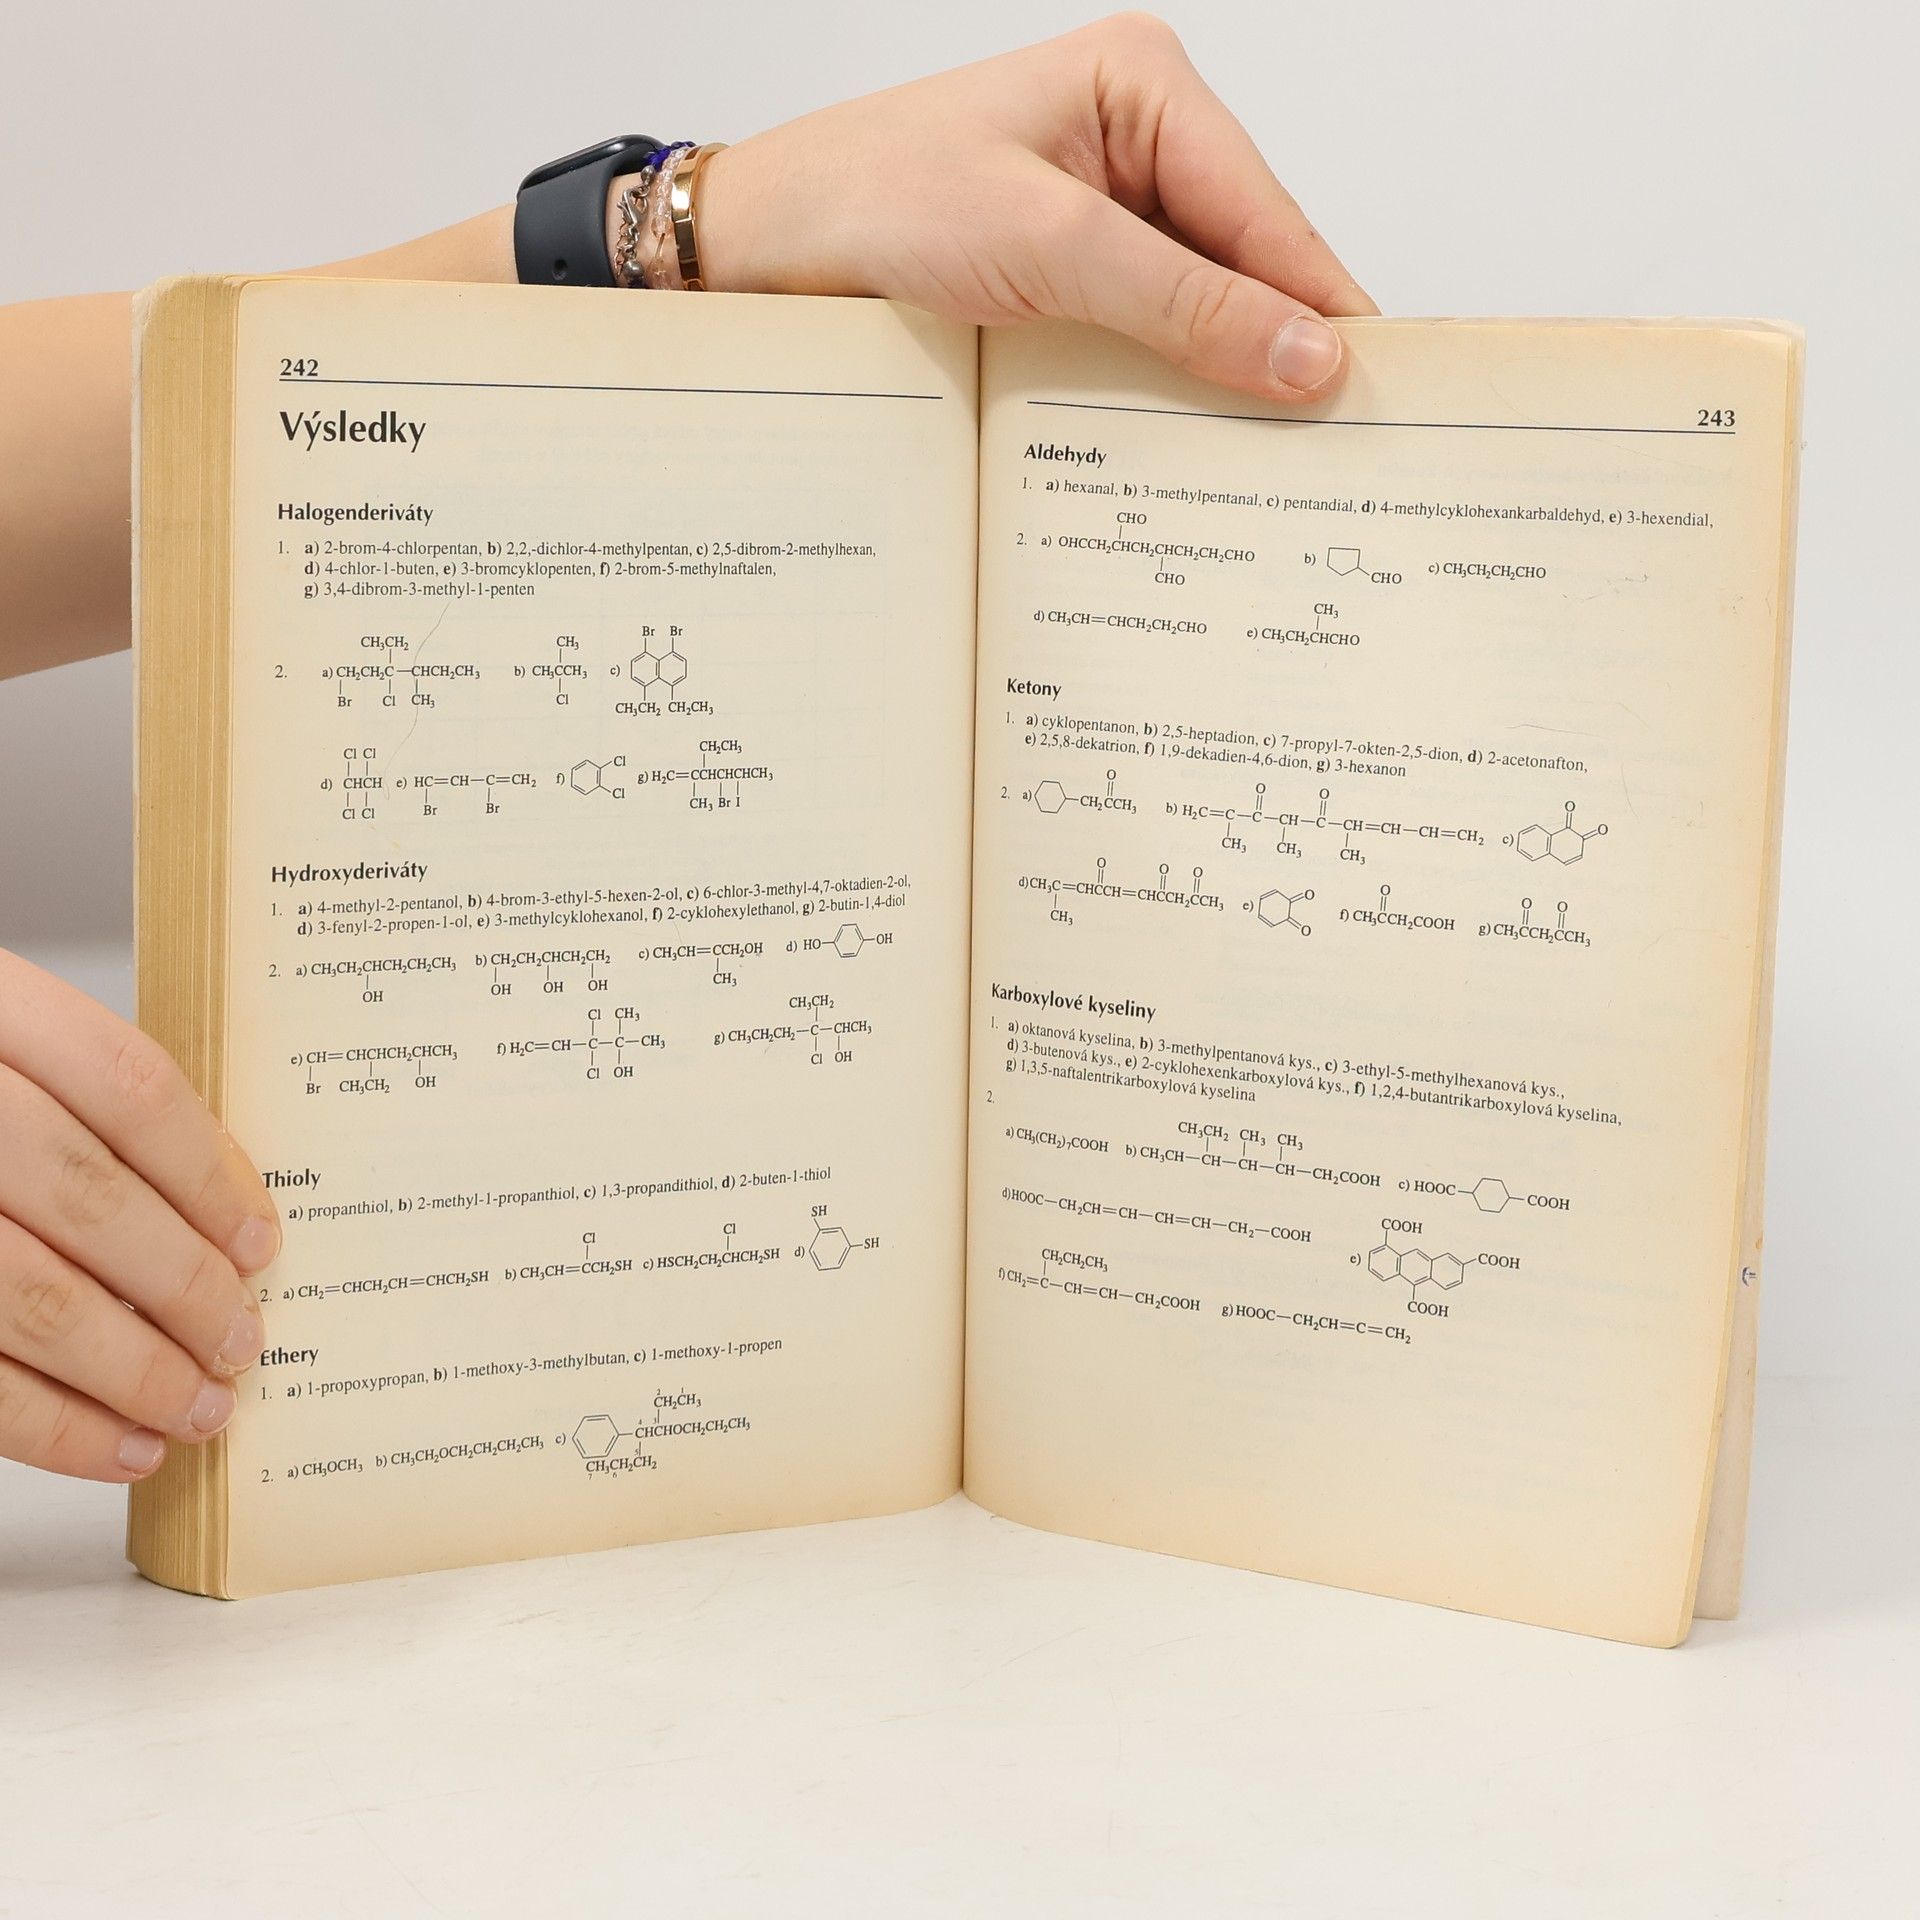 242
Výsledky
Halogenderiváty
1. a) 2-brom-4-chlorpentan, b) 2,2,-dichlor-4-methylpentan, c) 2,5-dibrom-2-methylhexan,
d) 4-chlor-1-buten, e) 3-bromcyklopenten, f) 2-brom-5-methylnaftalen,
g) 3,4-dibrom-3-methyl-1-penten
CH₃CH₂ CH₃ Br Br
2. a) CH₂CH₂C—CHCH₂CH₃ b) CH₃CCH₃ c)
Br Cl CH₃ Cl CH₃CH₂ CH₂CH₃
Cl Cl Cl CH₂CH₃
d) CHCH e) HC=CH—C=CH₂ f) g) H₂C=CCHCHCHCH₃
Cl Cl Br Br Cl CH₃ Br I
Hydroxyderiváty
1. a) 4-methyl-2-pentanol, b) 4-brom-3-ethyl-5-hexen-2-ol, c) 6-chlor-3-methyl-4,7-oktadien-2-ol,
d) 3-fenyl-2-propen-1-ol, e) 3-methylcyklohexanol, f) 2-cyklohexylethanol, g) 2-butin-1,4-diol
2. a) CH₃CH₂CHCH₂CH₂CH₃ b) CH₂CH₂CHCH₂CH₂ c) CH₃CH=CCH₂OH d) HO OH
OH OH OH OH CH₃
Cl CH₃ CH₃CH₂
e) CH=CHCHCH₂CHCH₃ f) H₂C=CH—C—C—CH₃ g) CH₃CH₂CH₂—C—CHCH₃
Br CH₃CH₂ OH Cl OH Cl OH
Thioly
a) propanthiol, b) 2-methyl-1-propanthiol, c) 1,3-propandithiol, d) 2-buten-1-thiol
Cl Cl SH
2. a) CH₂=CHCH₂CH=CHCH₂SH b) CH₃CH=CCH₂SH c) HSCH₂CH₂CHCH₂SH d) SH
Ethery
1. a) 1-propoxypropan, b) 1-methoxy-3-methylbutan, c) 1-methoxy-1-propen
2 1
CH₂CH₃
4 3
2. a) CH₃OCH₃ b) CH₃CH₂OCH₂CH₂CH₂CH₃ c) CHCHOCH₂CH₂CH₃
5
CH₃CH₂CH₂
7 6
243
Aldehydy
1. a) hexanal, b) 3-methylpentanal, c) pentandial, d) 4-methylcyklohexankarbaldehyd, e) 3-hexendial,
CHO
2. a) OHCCH₂CHCH₂CHCH₂CH₂CHO b) CHO c) CH₃CH₂CH₂CHO
CHO
CH₃
d) CH₃CH=CHCH₂CH₂CHO e) CH₃CH₂CHCHO
Ketony
1. a) cyklopentanon, b) 2,5-heptadion, c) 7-propyl-7-okten-2,5-dion, d) 2-acetonafton,
e) 2,5,8-dekatrion, f) 1,9-dekadien-4,6-dion, g) 3-hexanon
O O O O
2. a) CH₂CCH₃ b) H₂C=C—C—CH—C—CH=CH—CH=CH₂ c) O
CH₃ CH₃ CH₃
O O O O O O O
d) CH₃C=CHCCH=CHCCH₂CCH₃ e) O f) CH₃CCH₂COOH g) CH₃CCH₂CCH₃
CH₃
Karboxylové kyseliny
1. a) oktanová kyselina, b) 3-methylpentanová kys., c) 3-ethyl-5-methylhexanová kys.,
d) 3-butenová kys., e) 2-cyklohexenkarboxylová kys., f) 1,2,4-butantrikarboxylová kyselina,
g) 1,3,5-naftalentrikarboxylová kyselina
2.
CH₃CH₂ CH₃ CH₃
a) CH₃(CH₂)₇COOH b) CH₃CH—CH—CH—CH—CH₂COOH c) HOOC COOH
d) HOOC—CH₂CH=CH—CH=CH—CH₂—COOH COOH
e) COOH
CH₂CH₂CH₃ COOH
f) CH₂=C—CH=CH—CH₂COOH g) HOOC—CH₂CH=C=CH₂